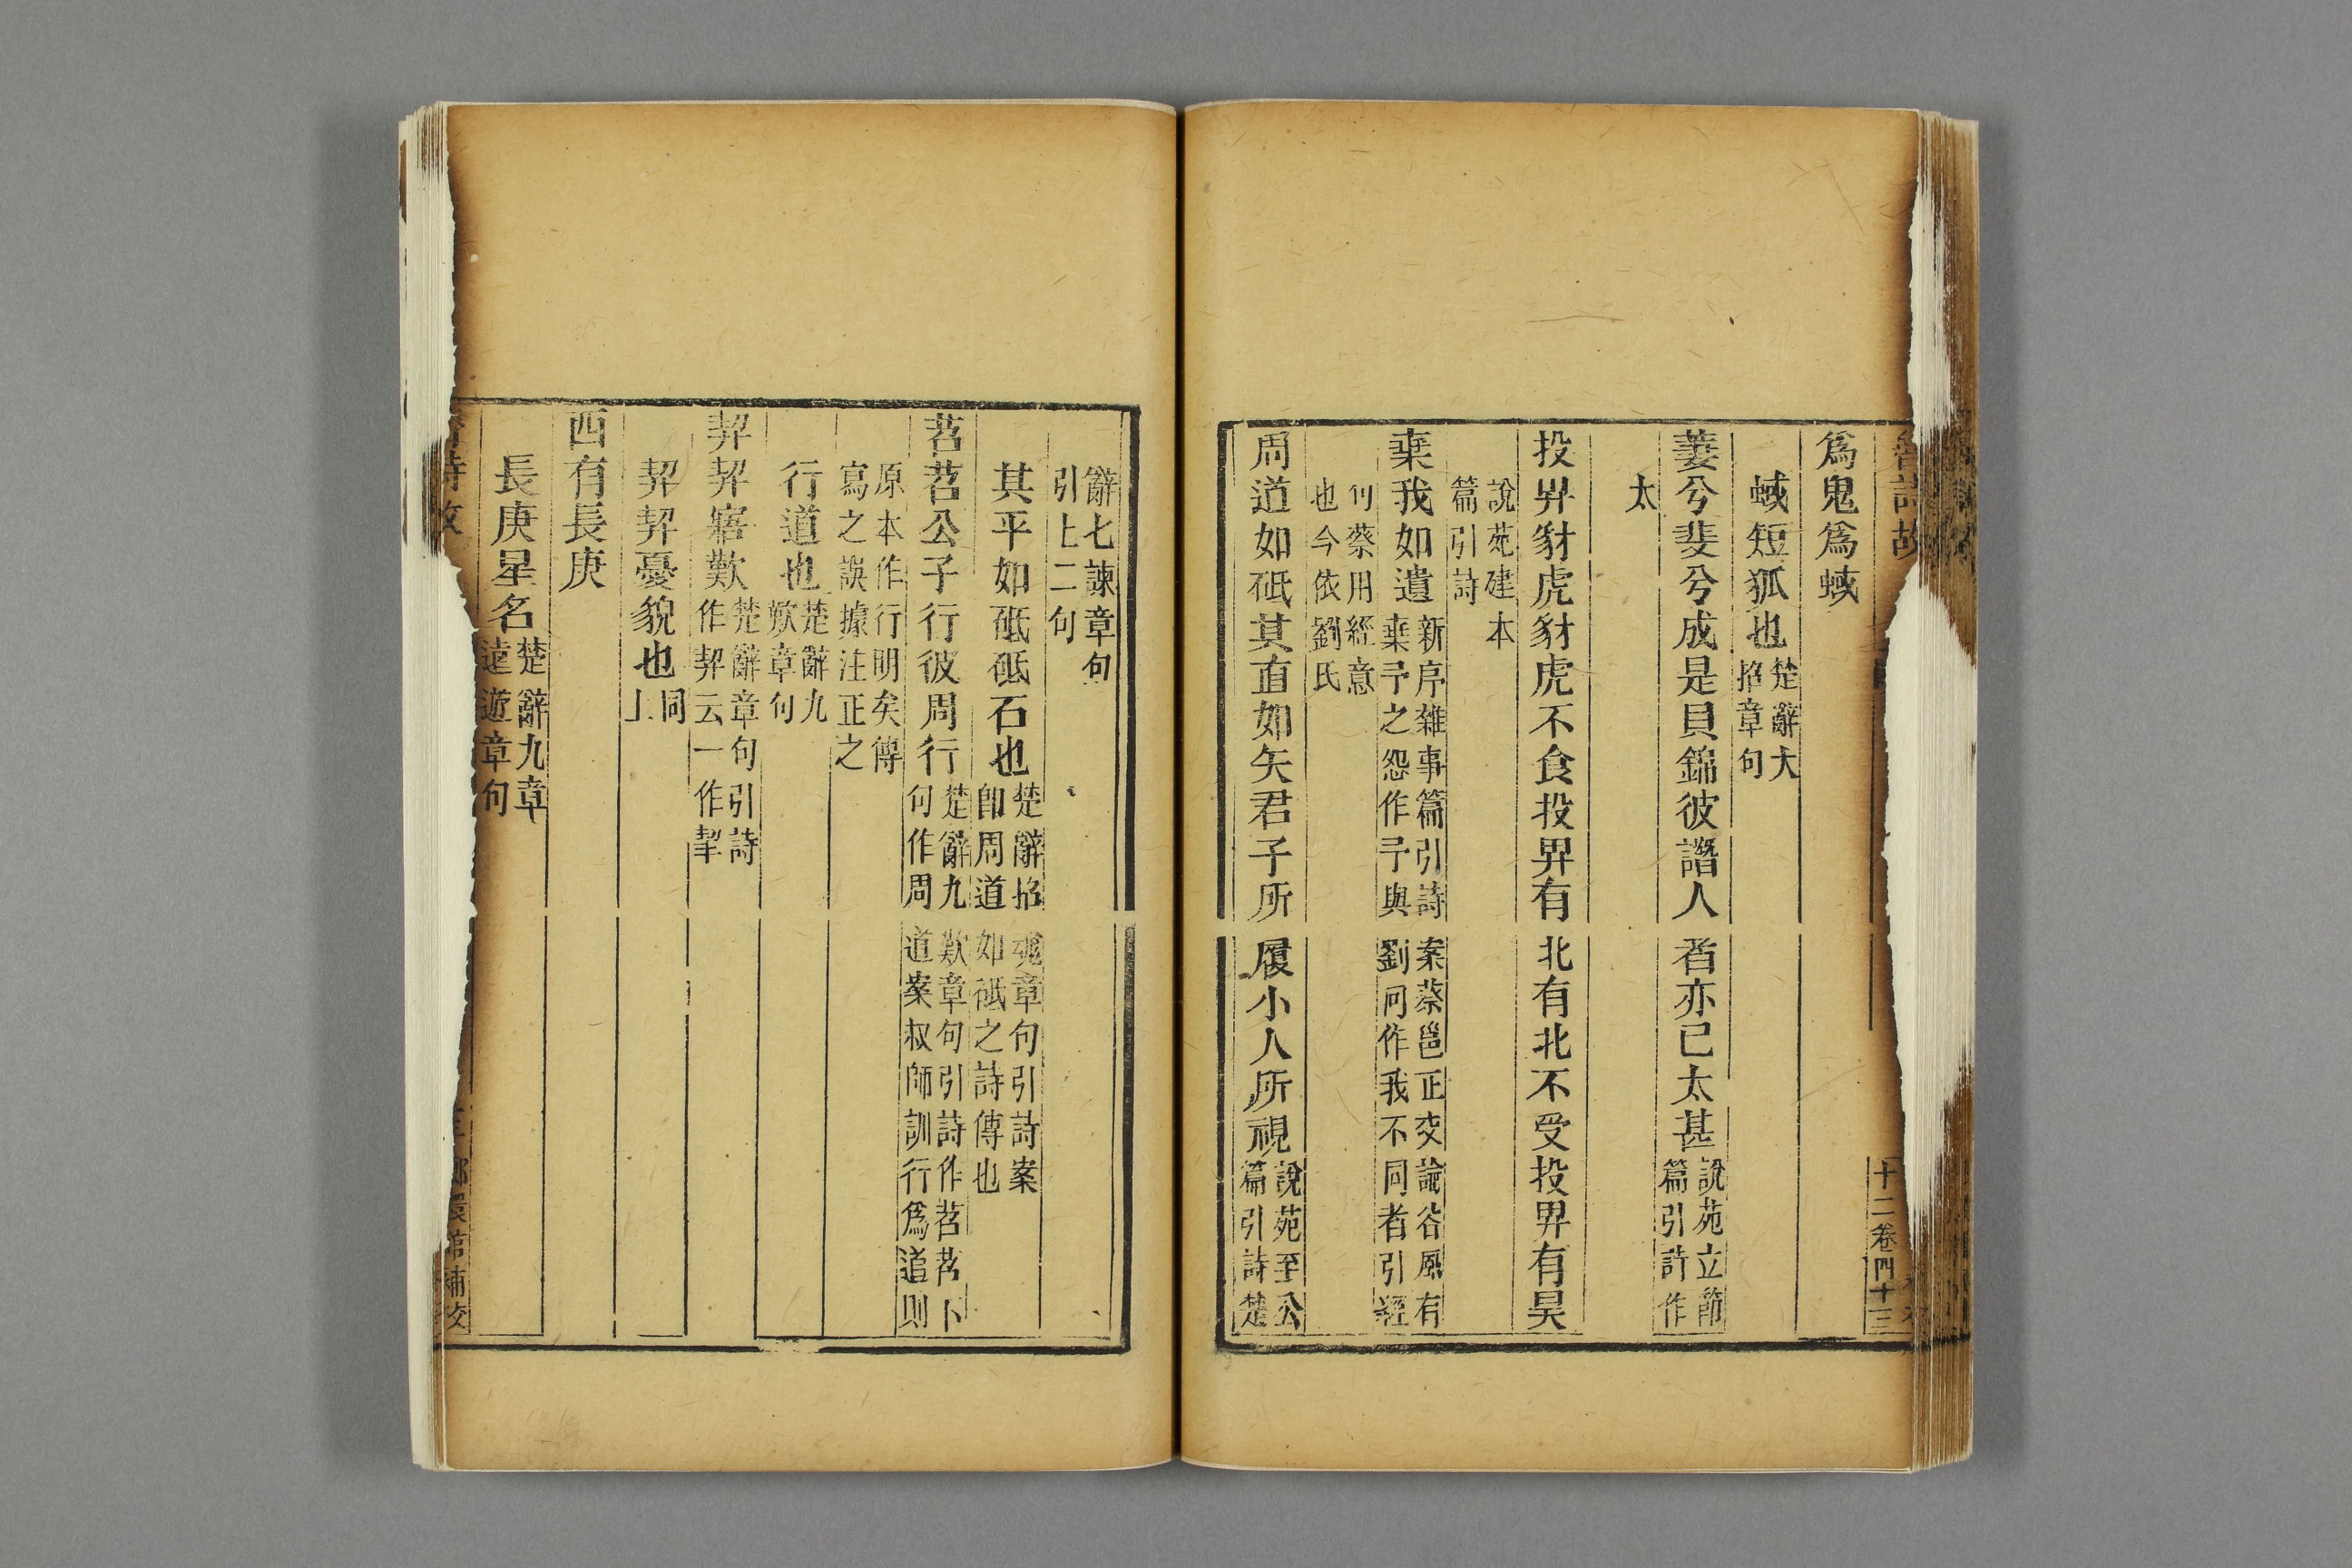 魯詩故
十二卷四十三
爲鬼爲蜮
蜮短狐也楚辭大
招章句
萋兮斐兮成是貝錦彼譖人者亦已太甚說苑立節
篇引詩作
太
投畀豺虎豺虎不食投畀有北有北不受投畀有昊
說苑建本
篇引詩
棄我如遺新序雜事篇引詩案蔡邕正交論谷風有
棄予之怨作予與劉同作我不同者引經
句蔡用經意
也今依劉氏
周道如砥其直如矢君子所履小人所視說苑至公
篇引詩楚
辭七諫章句
引上二句
其平如砥砥石也楚辭招魂章句引詩案
卽周道如砥之詩傳也
苕苕公子行彼周行楚辭九歎章句引詩作苕苕卜
句作周道案叔師訓行爲道則
原本作行明矣傳
寫之誤據注正之
行道也楚辭九
歎章句
契契寤歎楚辭章句引詩
作契云一作挈
契契憂貌也同
上
西有長庚
長庚星名楚辭九章
遠遊章句
詩故
補校